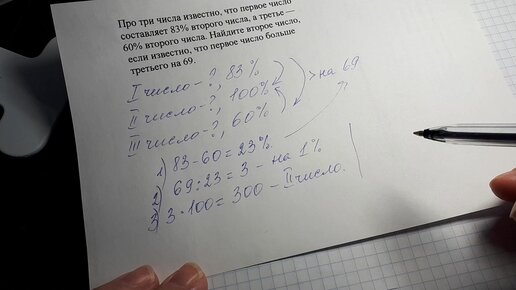 Про три числа известно, что первое число
составляет 83% второго числа, а третье —
60% второго числа. Найдите второе число,
если известно, что первое число больше
третьего на 69.
I число - ?, 83% > на 69
II число - ?, 100%
III число - ?, 60%
1) 83 - 60 = 23%
2) 69 : 23 = 3 - на 1%
3) 3 · 100 = 300 - II число.